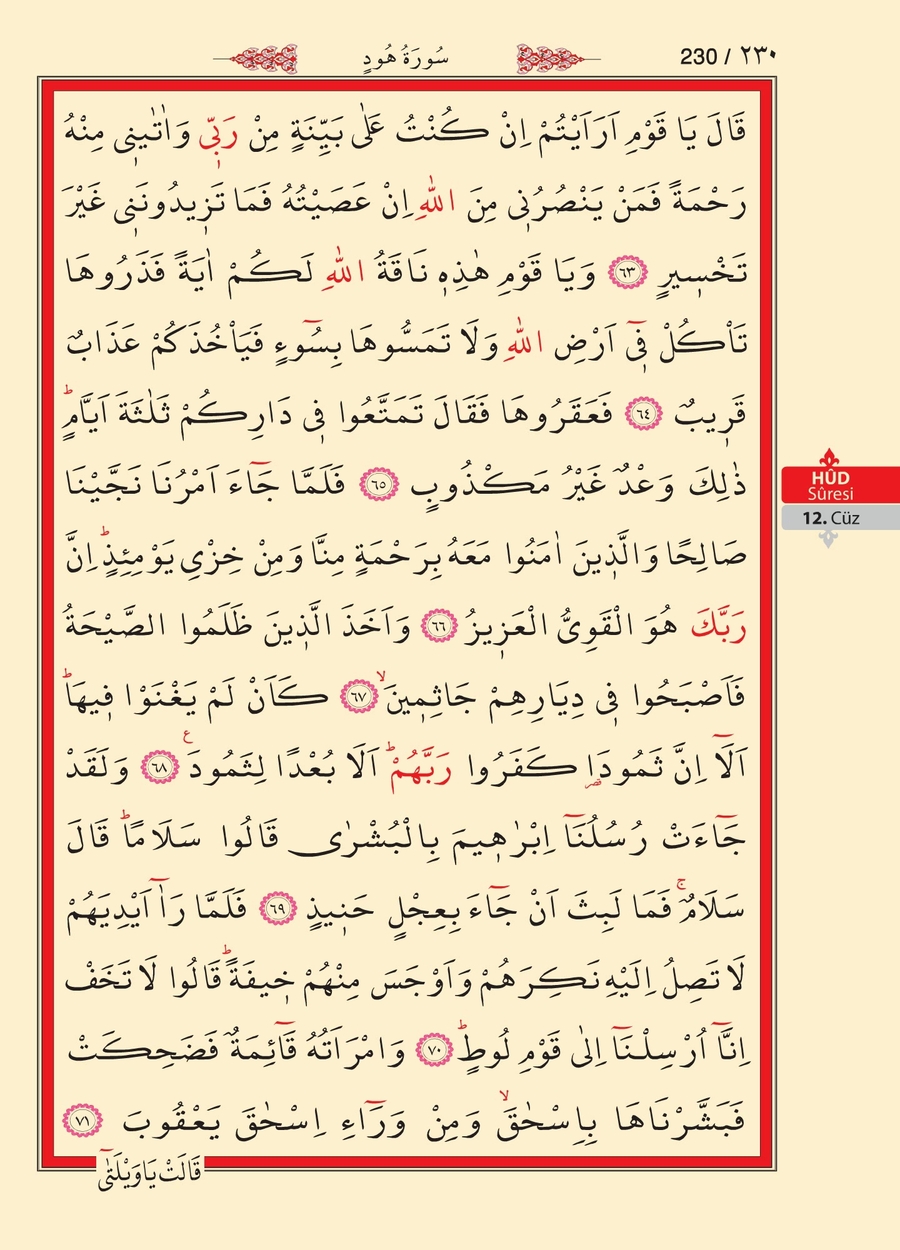 230 / ٢٣٠
سُورَةُ هُودٍ
قَالَ يَا قَوْمِ اَرَاَيْتُمْ اِنْ كُنْتُ عَلٰى بَيِّنَةٍ مِنْ رَبّ۪ي وَاٰتٰين۪ي مِنْهُ
رَحْمَةً فَمَنْ يَنْصُرُن۪ي مِنَ اللّٰهِ اِنْ عَصَيْتُهُ فَمَا تَز۪يدُونَن۪ي غَيْرَ
تَخْس۪يرٍ ﴿٦٣﴾ وَيَا قَوْمِ هٰذِه۪ نَاقَةُ اللّٰهِ لَكُمْ اٰيَةً فَذَرُوهَا
تَأْكُلْ ف۪ٓي اَرْضِ اللّٰهِ وَلَا تَمَسُّوهَا بِسُٓوءٍ فَيَأْخُذَكُمْ عَذَابٌ
قَر۪يبٌ ﴿٦٤﴾ فَعَقَرُوهَا فَقَالَ تَمَتَّعُوا ف۪ي دَارِكُمْ ثَلٰثَةَ اَيَّامٍۜ
ذٰلِكَ وَعْدٌ غَيْرُ مَكْذُوبٍ ﴿٦٥﴾ فَلَمَّا جَٓاءَ اَمْرُنَا نَجَّيْنَا
صَالِحًا وَالَّذ۪ينَ اٰمَنُوا مَعَهُ بِرَحْمَةٍ مِنَّا وَمِنْ خِزْيِ يَوْمِئِذٍۜ اِنَّ
رَبَّكَ هُوَ الْقَوِيُّ الْعَز۪يزُ ﴿٦٦﴾ وَاَخَذَ الَّذ۪ينَ ظَلَمُوا الصَّيْحَةُ
فَاَصْبَحُوا ف۪ي دِيَارِهِمْ جَاثِم۪ينَۙ ﴿٦٧﴾ كَاَنْ لَمْ يَغْنَوْا ف۪يهَاۜ
اَلَٓا اِنَّ ثَمُودَا۬ كَفَرُوا رَبَّهُمْۜ اَلَا بُعْدًا لِثَمُودَ۟ ﴿٦٨﴾ وَلَقَدْ
جَٓاءَتْ رُسُلُنَٓا اِبْرٰه۪يمَ بِالْبُشْرٰى قَالُوا سَلَامًاۜ قَالَ
سَلَامٌۚ فَمَا لَبِثَ اَنْ جَٓاءَ بِعِجْلٍ حَن۪يذٍ ﴿٦٩﴾ فَلَمَّا رَآٰ اَيْدِيَهُمْ
لَا تَصِلُ اِلَيْهِ نَكِرَهُمْ وَاَوْجَسَ مِنْهُمْ خ۪يفَةًۜ قَالُوا لَا تَخَفْ
اِنَّٓا اُرْسِلْنَٓا اِلٰى قَوْمِ لُوطٍۜ ﴿٧٠﴾ وَامْرَاَتُهُ قَٓائِمَةٌ فَضَحِكَتْ
فَبَشَّرْنَاهَا بِاِسْحٰقَۙ وَمِنْ وَرَٓاءِ اِسْحٰقَ يَعْقُوبَ ﴿٧١﴾
قَالَتْ يَا وَيْلَتٰٓى
HÛD
Sûresi
12. Cüz